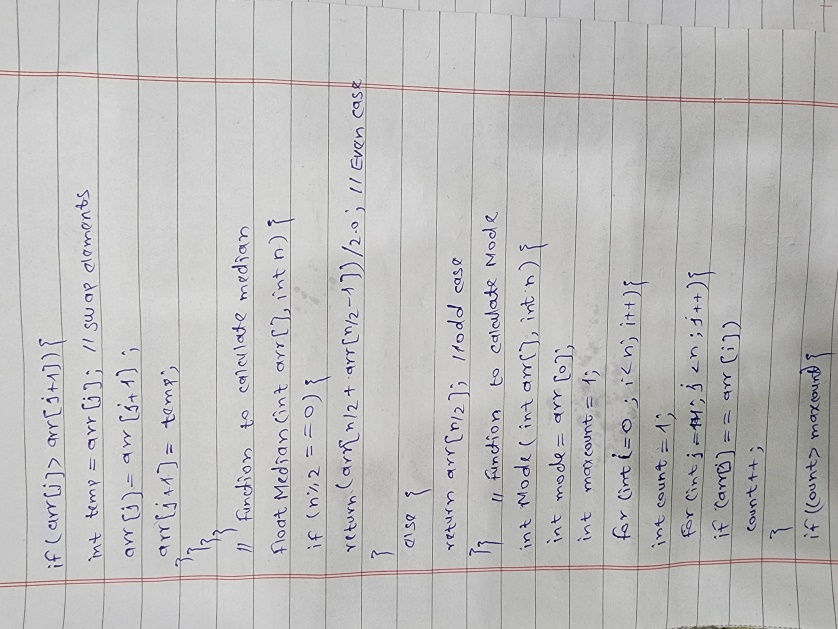 if (arr[j] > arr[j+1]) {
int temp = arr[j]; // swap elements
arr[j] = arr[j+1];
arr[j+1] = temp;
} } } }
// Function to calculate median
float Median(int arr[], int n) {
if (n%2 == 0) {
return (arr[n/2 + arr[n/2-1])/2.0; // Even case
}
else {
return arr[n/2]; // odd case
}} // Function to calculate Mode
int Mode (int arr[], int n) {
int mode = arr[0];
int maxcount = 1;
for (int i=0; i<n; i++) {
int count = 1;
for (int j = ; j<n; j++) {
if (arr[j] == arr[i])
count++;
}
if (count > maxcount) {